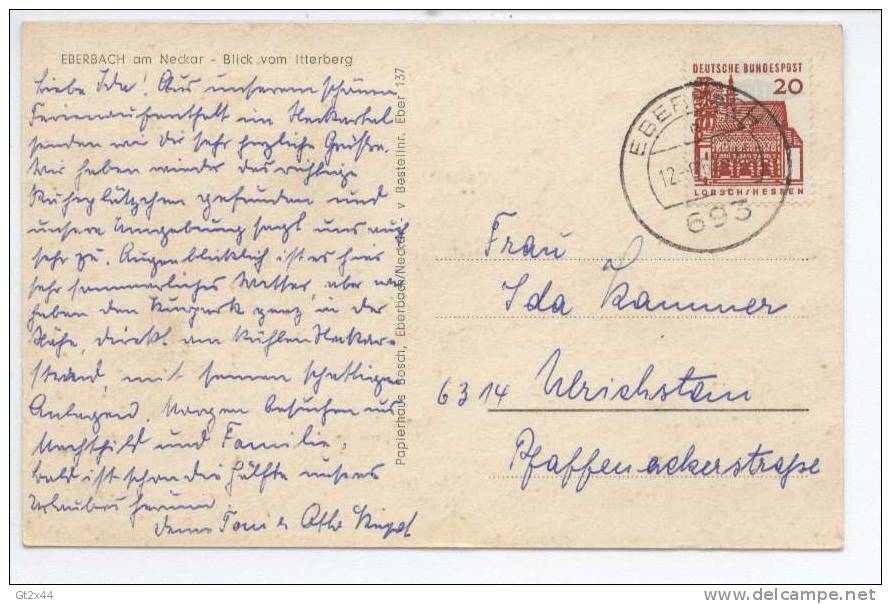 EBERBACH am Neckar - Blick vom Itterberg
Liebe Ida! Aus unserem schönen
Ferienaufenthalt im Neckartal
senden wir Dir sehr herzliche Grüße.
Wir haben wieder das richtige
Ruheplätzchen gefunden und
unsere Umgebung sagt uns auch
sehr zu. Augenblicklich ist es hier
sehr sommerliches Wetter, aber wir
haben den Kurpark ganz in der
Nähe, direkt am kühlen Neckar-
strand, mit seinen schattigen
Anlagen. Morgen besuchen uns
Mechthild und Familie.
Bald ist schon die Hälfte unseres
Urlaubes herum
Toni u Otto
Papierhaus Bosch, Eberbach/Neckar - v Bestellnr. Eber 137
DEUTSCHE BUNDESPOST
20
LORSCH/HESSEN
EBERBACH
12.
693
Frau
Ida Kammer
6314 Ulrichstein
Pfaffenackerstraße
Gt2x44
delcampe.net